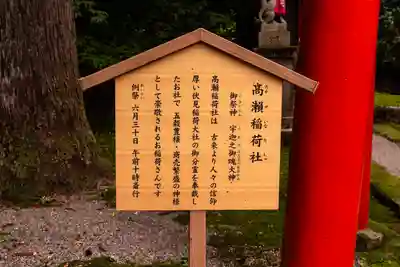 高瀬稲荷社
御祭神 宇迦之御魂大神
高瀬稲荷社は 古来より人々の信仰
厚い伏見稲荷大社の御分霊を奉戴し
たお社で 五穀豊穣・商売繁盛の神様
として崇敬されるお稲荷さんです
例祭 六月三十日 午前十時斎行